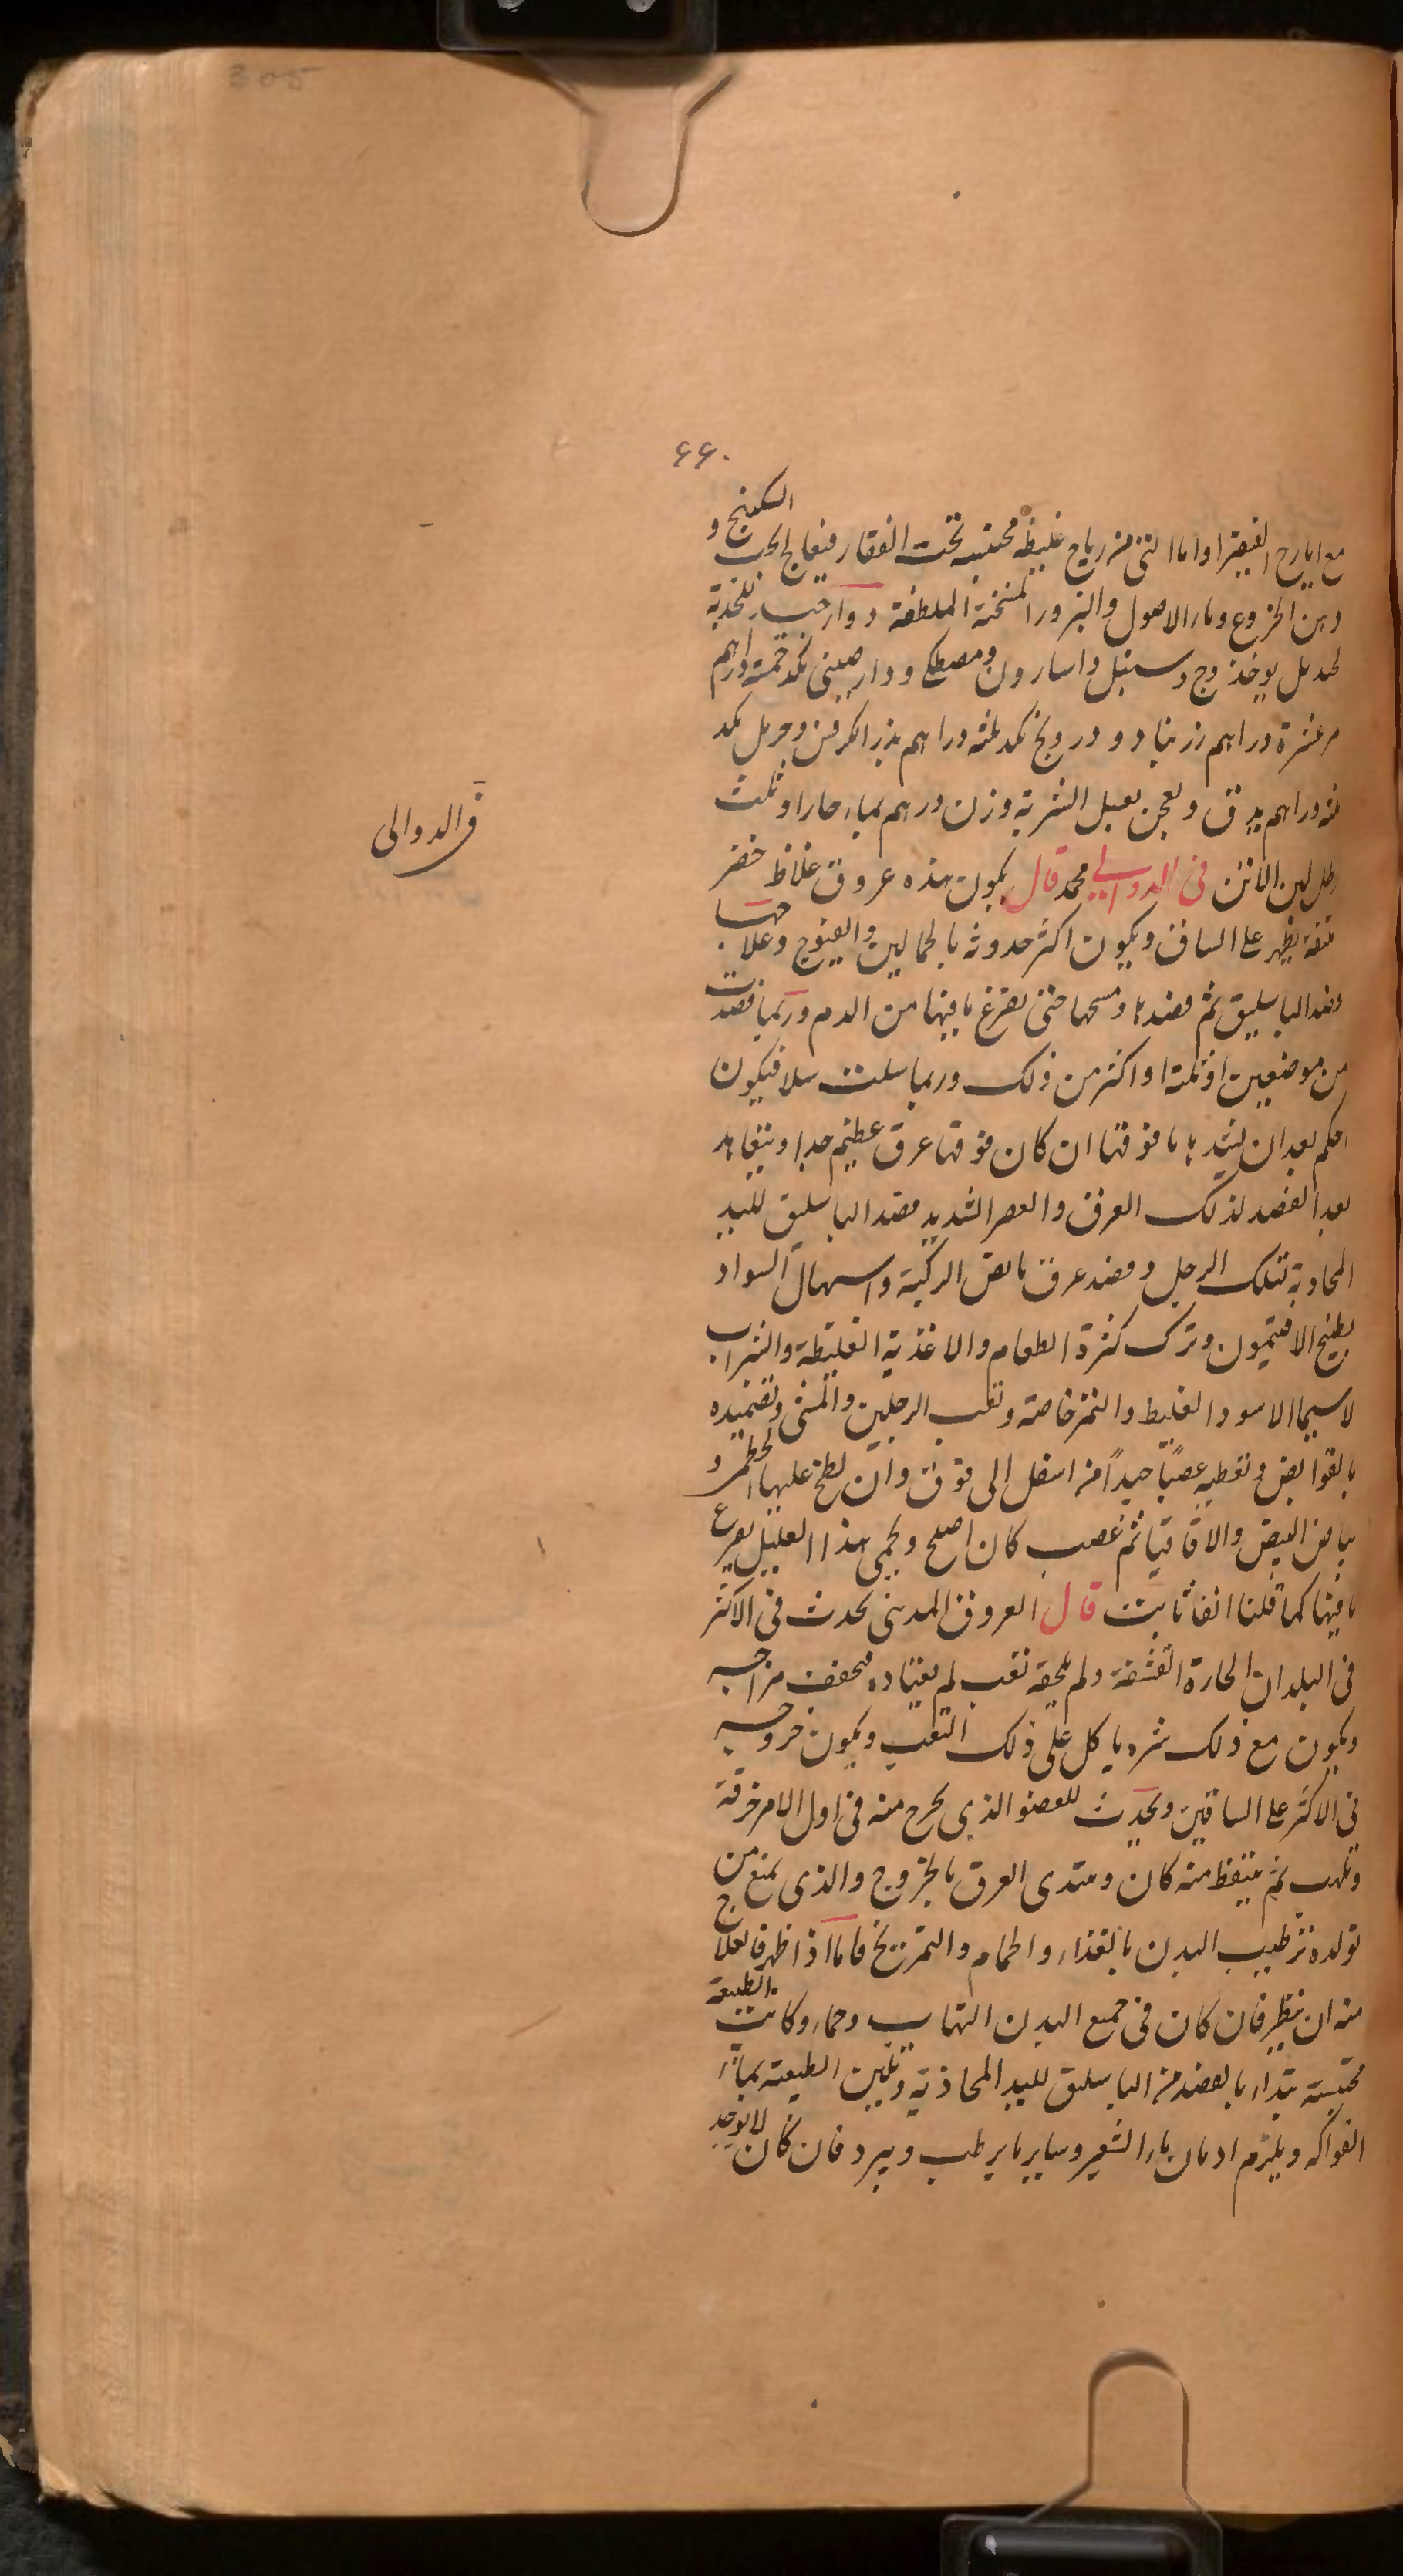 305
۶۶۰
السكبينج و
مع ايارج الفيقرا واما التى من رياح غليظه محتقنه تحت الفقار فيعالج بحب
دهن الخروع وماء الاصول والبزور المسخنة الملطفة دواء جيد للحدبة
يوخذ وج وسنبل واسارون ومصطكى ودارصينى بكد خمسة دراهم
عشرة دراهم زرنباد و درونج بكد ثلثه دراهم بزر الكرفس وحرمل بكد
دراهم يدق ويعجن بعسل الشربة وزن درهم بماء حار او ثلث
رطل لبن الاتن فى الدوالي محمد قال يكون هذه عروق غلاظ خضر
ملتفة يظهر على الساق ويكون اكثر حدوثه بالحمالين والفيوج وعلاجها
فصد الباسليق ثم فصدها ومسحها حتى يفرغ ما فيها من الدم وربما فصدت
من موضعين او ثلثة او اكثر من ذلك وربما سلت سلا فيكون
احكم بعد ان يشد ما فوقها ان كان فوقها عرق عظيم جدا ويتعاهد
بعد الفصد لذلك العرق والعصر الشديد فصد الباسليق لليد
المحاذية لتلك الرجل وفصد عرق مابض الركبة واسهال السواد
بطبيخ الافتيمون وترك كثرة الطعام والاغذية الغليظة والشراب
لاسيما الاسود الغليظ والتمر خاصة وتعب الرجلين والمشى وتضميده
بالقوابض وتعصيبه عصبًا جيدًا من اسفل الى فوق وان لطخ عليها الخطمى و
بياض البيض والاقاقيا ثم عصب كان اصلح ويحمى هذا العليل بفرع
ما فيها كما قلنا انفا ثابت قال العروق المدينى يحدث فى الاكثر
فى البلدان الحارة القشفة ولم يلحقه تعب لم يعتاده فيجفف مزاجه
ويكون مع ذلك شره ياكل على ذلك التعب ويكون خروجه
فى الاكثر على الساقين ويحدث للعضو الذى يخرج منه فى اول الامر حرقة
وتلهب ثم يتنفط منه كان ويبتدى العرق بالخروج والذى يمنع من
تولده ترطيب البدن بالغذاء والحمام والتمريخ فاما اذا ظهر فالعلاج
منه ان ينظر فان كان فى جميع البدن التهاب وحماء وكانت الطبيعة
محتبسة يبتداء بالفصد من الباسليق لليد المحاذية وتليين الطبيعة بماء
الفواكه ويلزم ادمان ماء الشعير وساير ما يرطب ويبرد فان كان لا يوجد
فى الدوالى